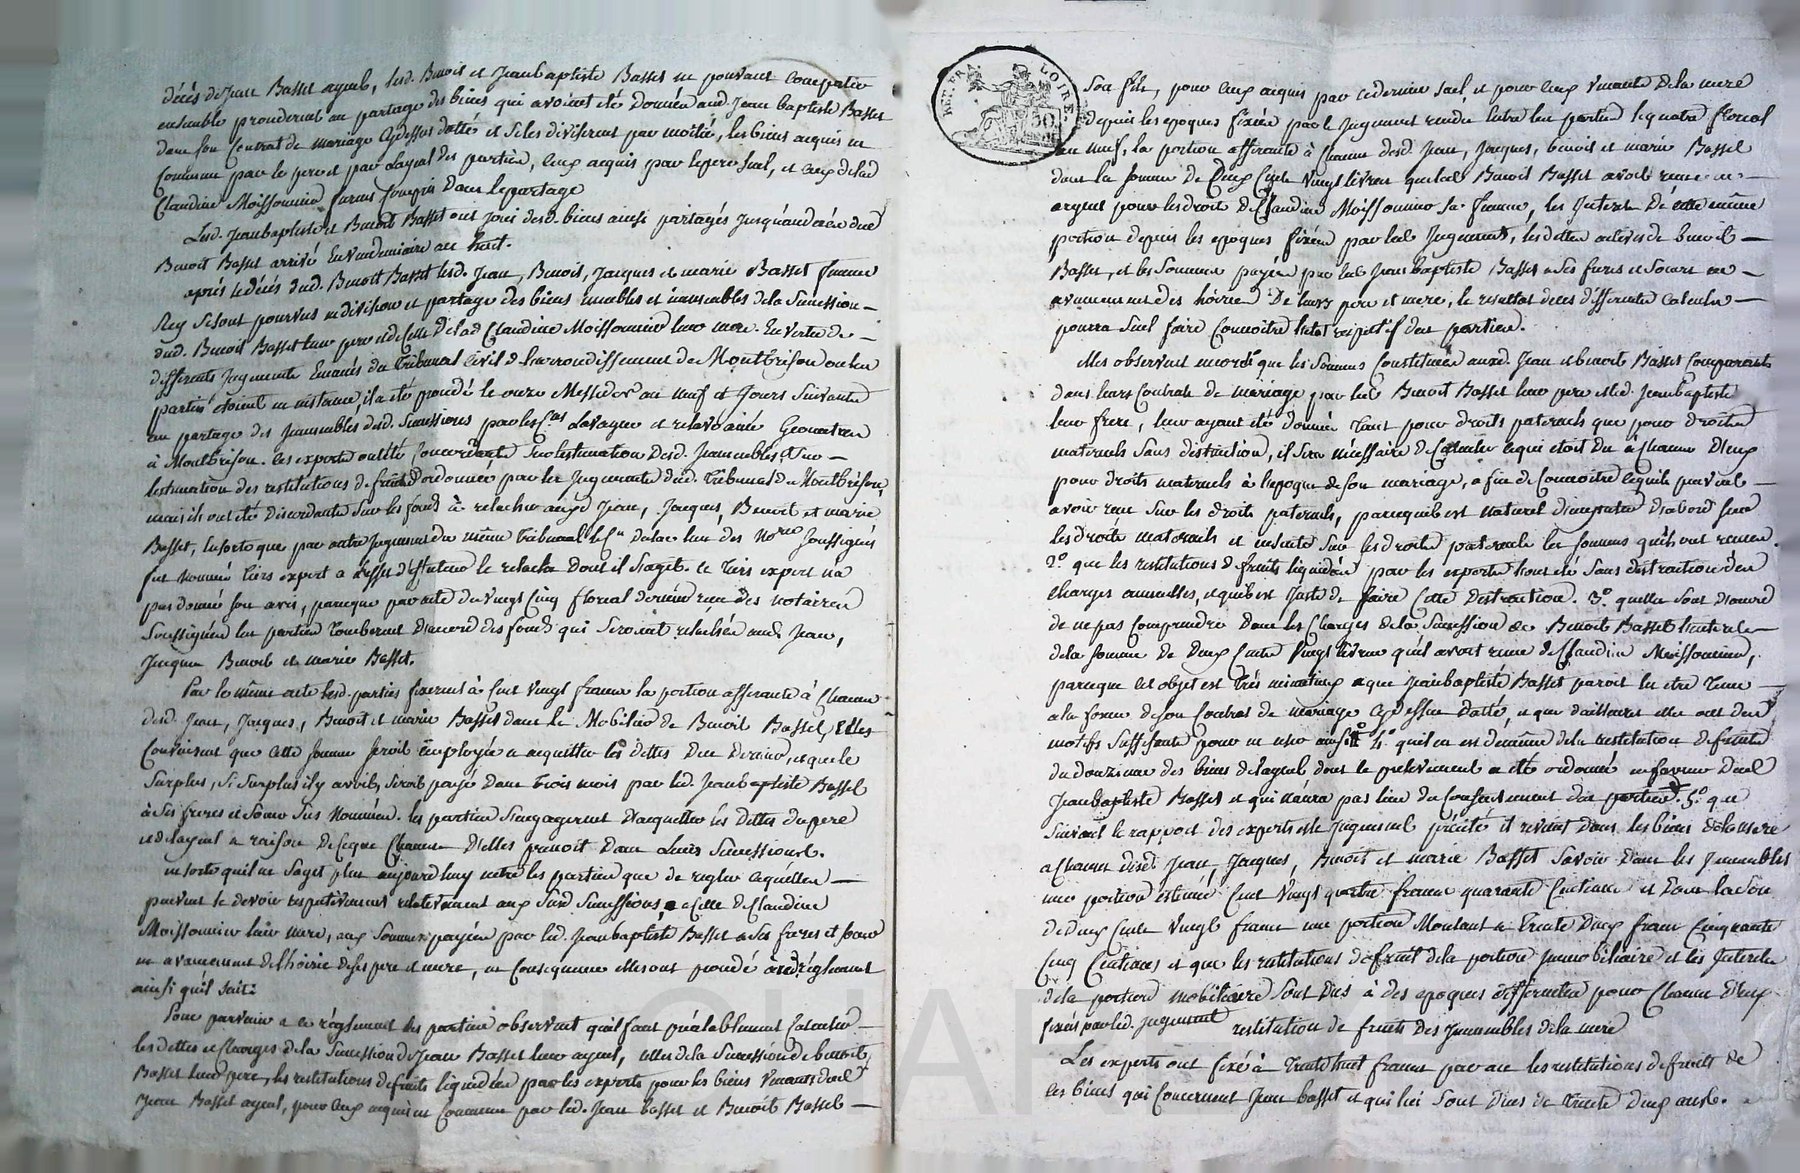 décès de Jean Basset ayeul, lesd. Benoit et Jeanbaptiste Basset ne pouvant compatir
ensemble prouderent au partage des biens qui avoient été donnés aud. Jean baptiste Basset
dans son Contrat de mariage Cydessus datté et se les diviserent par moitié, les biens acquis en
Commun par le pere et par Layeul des parties, Ceux acquis par le pere seul, et Ceux de lad
Claudine Moissonnier furent Compris dans le partage
Lesd. Jeanbaptiste et Benoit Basset ont joui desd. biens ainsi partagés jusqu'au décès dud
Benoit Basset arrivé En Vendemiaire an huit.
après le décès dud. Benoit Basset lesd. Jean, Benoit, Jacques et marie Basset femme
Rey se sont pourvus en division et partage des biens meubles et immeubles de la Succession
dud. Benoit Basset leur pere et de celle de lad Claudine Moissonnier leur mere. En vertu de
differents Jugements Emanés du Tribunal Civil de l'arrondissement de Montbrison ou les
parties étoient en instance, il a été procédé le onze Messidor an neuf et Jours Suivants
au partage des Immeubles desd. Successions par les Cns Lavagne et relave ainé Geometres
à Montbrison. les experts ont été Concordants Sur l'estimation desd. Immeubles et Sur
lestimation des restitutions de fruits ordonnées par les Jugements dud. Tribunal de Montbrison,
mais ils ont été discordants Sur les fonds à relacher auxd Jean, Jacques, Benoit et marie
Basset, Ensorte que par autre Jugement du même Tribunal le Cn Delac lun des Nores Soussignés
fut nommé tiers expert a l'effet d'effectuer le relache dont il Sagit. Ce tiers expert n'a
pas donné son avis, parceque par acte du Vingt Cinq floreal dernier reçu des notaires
Soussignés les parties tomberent D'accord des fonds qui Seroient relachés auxd. Jean,
Jacques Benoit et marie Basset.
Par le même acte lesd. parties fixerent à Cent Vingt francs la portion afferante à Chacun
desd. Jean, Jacques, Benoit et marie Basset dans le Mobilier de Benoit Basset, Elles
Convinrent que Cette Somme Seroit Employée a acquitter les dettes Du Dernier, et que le
Surplus, Si Surplus il y avoit, Seroit payé Dans trois mois par led. Jeanbaptiste Basset
à Ses freres et Soeur Sus Nommés. les parties S'engagerent D'acquitter les Dettes du pere
et de layeul a raison de Ceque Chacune D'elles prenoit Dans Leurs Successions.
ensorte quil ne Sagit plus aujourdhuy entre les parties que de regler Cequelles
peuvent Se devoir respectivement relativement aux Susd Successions, a Celle de Claudine
Moissonnier leur mere, aux Sommes payées par led. Jeanbaptiste Basset a Ses freres et Soeur
en avancement de l'hoirie de ses pere et mere, en Consequence elles ont procédé aud réglement
ainsi qu'il Suit:
Pour parvenir a ce réglement les parties observent quil faut préalablement Calculer
les dettes et Charges de la Succession de Jean Basset leur ayeul, celles de la Succession de benoit
Basset leur pere, les restitutions de fruits liquidées par les experts pour les biens Venants dud
Jean Basset ayeul, pour Ceux acquis en Commun par led. Jean basset et Benoit Basset
REP. FRA. LOIRE. 50
Son fils, pour Ceux acquis par Ce dernier Seul, et pour Ceux Venants De la mere
depuis les epoques fixées par le Jugement rendu Entre les parties le quatre floreal
an neuf, la portion afferante à Chacun desd. Jean, Jacques, benoit et marie Basset
dans la Somme de Deux Cents Vingt livres que led Benoit Basset avoit reçue en
argent pour les droits De Claudine Moissonnier Sa femme, les Interets De cette même
portion depuis les epoques fixées par led Jugement, les dettes actives de benoit
Basset, et les Sommes payées par led Jeanbaptiste Basset a Ses freres et Soeurs en
avancement des hoiries De leurs pere et mere, le resultat de ces differents calculs
pourra Seul faire Connoitre l'état respectif des parties.
Elles observent encore 1º que les Sommes Constituées auxd. Jean et benoit Basset Comparants
dans leurs Contrats de mariage par led Benoit Basset leur pere et led. Jeanbaptiste
leur frere, leur ayant été Données Tant pour droits paternels que pour droits
maternels Sans distinction, il Sera nécéssaire de Calculer ce qui étoit du à Chacun D'eux
pour droits maternels à l'epoque de son mariage, a fin de Connoitre ce quils peuvent
avoir reçu Sur les droits paternels, parcequil est naturel D'imputer D'abord Sur
les droits maternels et ensuite Sur les droits paternels les Sommes qu'ils ont reçues.
2º. que les restitutions de fruits liquidées par les experts l'ont été Sans distraction des
charges annuelles, et quil est Juste de faire Cette Distraction. 3º. quelles Sont D'accord
de ne pas Comprendre Dans les Charges de la Succession de Benoit Basset l'interet
de la Somme de Deux Cents Vingt livres qu'il avoit reçue de Claudine Moissonnier,
parceque Cet objet est Très minutieux et que Jeanbaptiste Basset paroit en etre tenu
a la forme de son Contrat de mariage Cydessus datté, et que d'ailleurs elles ont des
motifs Suffisants pour en user ainsi. 4º. quil en est de même de la restitution de fruits
du douzieme des biens de layeul dont le prelevement a été ordonné en faveur dud
Jeanbaptiste Basset et qui n'aura pas lieu du Consentement des parties. 5º. que
Suivant le rapport des experts et le Jugement précité il revient Dans les biens de la mere
a Chacun desd. Jean, Jacques, Benoit et marie Basset Savoir Dans les Immeubles
une portion estimée Cent Vingt quatre francs quarante Centimes et Dans la Somme
de Deux Cents Vingt francs une portion Montant à trente Deux francs Cinquante
Cinq Centimes et que les restitutions de fruits de la portion Immobiliaire et les Interets
de la portion mobiliaire Sont Dus à des epoques differentes pour Chacun D'eux
fixées par led. Jugement
restitution de fruits des Immeubles de la mere
Les experts ont fixé à trente huit francs par an les restitutions de fruits de
Ces biens qui Concernent Jean basset et qui lui Sont Dues de trente Deux ans.